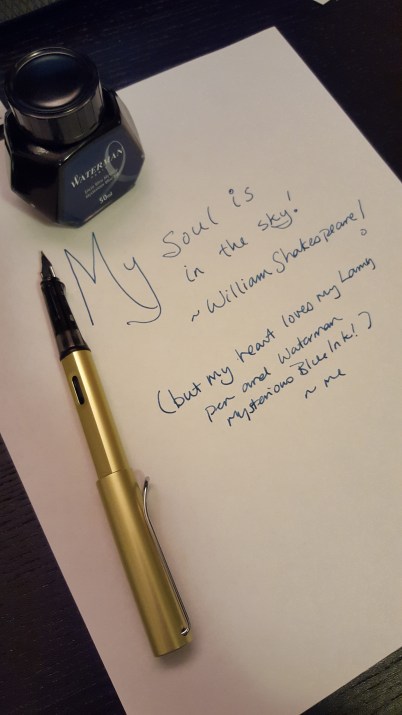 WATERMAN
50ml
My Soul is
in the sky!
~ William Shakespeare!
(but my heart loves my Lamy
pen and Waterman
Mysterious Blue Ink!)
~ me